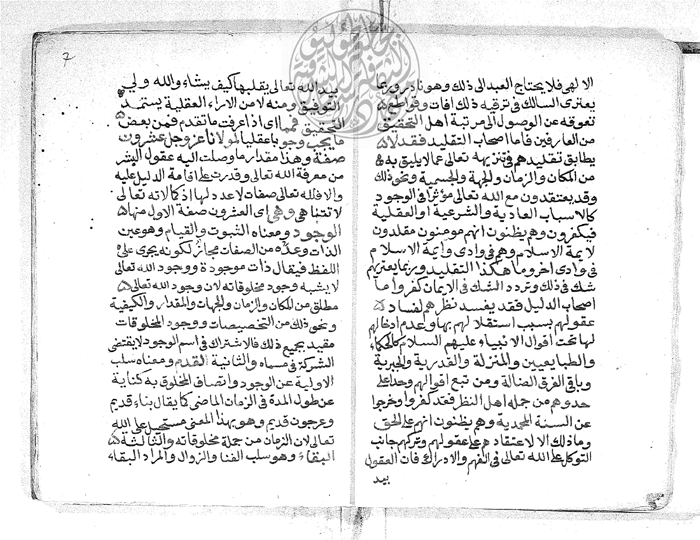 الالهي فلا يحتاج العبد الى ذلك وهو نادر وربما
يعترى السالك في ترقيه ذلك افات وقواطع
تعوقه عن الوصول الى مرتبة اهل التحقيق
من العارفين فاما اصحاب التقليد فقد لا
يطابق تقليدهم في تنزيهه تعالى عما لا يليق به
من المكان والزمان والجهة والجسمية ونحو ذلك
وقد يعتقدون مع الله تعالى مؤثرا في الوجود
كالاسباب العادية والشرعية او العقلية
فيكفرون وهم يظنون انهم مومنون مقلدون
لايمة الاسلام وهم في وادى وايمة الاسلام
في وادى اخر وما هكذا التقليد وربما يعتريهم
شك في ذلك وتردد الشك في الايمان كفر واما
اصحاب الدليل فقد يفسد نظرهم لفساد
عقولهم بسبب استقلالهم بها وعدم ادخالهم
لها تحت اقوال الانبياء عليهم السلام كالحكماء
والطبايعيين والمنزلة والقدرية والجبرية
وباقي الفرق الضالة ومن تبع اقوالهم وحدا على
حدوهم من جملة اهل النظر فقد كفروا وخرجوا
عن السنة المحمدية وهم يظنون انهم على الحق
وما ذلك الا لاعتقادهم على عقولهم وتركهم جانب
التوكل على الله تعالى في الفهم والادراك فان العقول
بيد
7
بيد الله تعالى يقلبها كيف يشاء والله ولي
التوفيق ومنه لا من الاراء العقلية يستمد
التحقيق فمما اى اذا عرفت ما تقدم فمن بعض
ما يجب وجوبا عقليا لمولانا عز وجل عشرون
صفة وهذا مقدار ما وصلت اليه عقول البشر
من معرفة الله تعالى وقدرت على اقامة الدليل عليه
والا فلله تعالى صفات لا عدد لها اذ كمالاته تعالى
لا تتناهى وهي اى العشرون صفة الاول منها
الوجود ومعناه الثبوت والقيام وهو عين
الذات وعده من الصفات مجاز لكونه يجرى على
اللفظ فيقال ذات موجودة ووجود الله تعالى
لا يشبه وجود مخلوقاته لان وجود الله تعالى
مطلق من المكان والزمان والجهات والمقدار والكيفية
ونحو ذلك من التخصيصات ووجود المخلوقات
مقيد بجميع ذلك فالاشتراك في اسم الوجود لا يقتضى
الشركة في مسماه والثانية القدم ومعناه سلب
الاولية عن الوجود واتصاف المخلوق به كناية
عن طول المدة في الزمان الماضى كما يقال بناء قديم
وعرجون قديم وهو بهذا المعنى مستحيل على الله
تعالى لان الزمان من جملة مخلوقاته والثالثة
البقاء وهو سلب الفنا والزوال والمراد البقاء